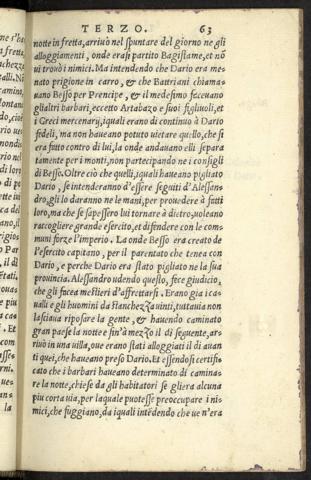 TERZO. 63
notte in fretta, arriuò nel spuntare del giorno ne gli
alloggiamenti, onde erasi partito Bagistame, et nõ
ui trouò i nimici. Ma intendendo che Dario era me
nato prigione in carro, & che Battriani chiama-
uano Besso per Prencipe, & il medesimo feceuano
gli altri barbari, eccetto Artabazo e suoi figliuoli, et
i Greci mercenarij, iquali erano di continuo à Dario
fedeli, ma non haueano potuto uietare quello, che si
era fatto contro di lui, la onde andauano elli separa
tamente per i monti, non partecipando ne i consigli
di Besso. Oltre ciò che quelli, iquali haueano pigliato
Dario, se intenderanno d'essere seguiti d'Alessan-
dro, gli lo daranno ne le mani, per prouedere à fatti
loro, ma che se sapessero lui tornare à dietro, uoleano
raccogliere grande esercito, et difendere con le com
muni forze l'imperio. La onde Besso era creato de
l'esercito capitano, per il parentato che tenea con
Dario, e perche Dario era stato pigliato ne la sua
prouincia. Alessandro udendo questo, fece giudicio,
che gli fucea mestieri d'affrettarsi. Erano gia i ca-
ualli e gli huomini da stanchezza uinti, tuttauia non
lasciaua riposare la gente, & hauendo caminato
gran paese la notte e fin'à mezzo il dì seguente, ar-
riuò in una uilla, oue erano stati alloggiati il dì auan
ti quei, che haueano preso Dario. Et essendosi certifi-
cato che i barbari haueano determinato di camina-
re la notte, chiese da gli habitatori se gliera alcuna
piu corta uia, per laquale potesse preoccupare i ni-
mici, che fuggiano, da iquali intẽdendo che ue n'era